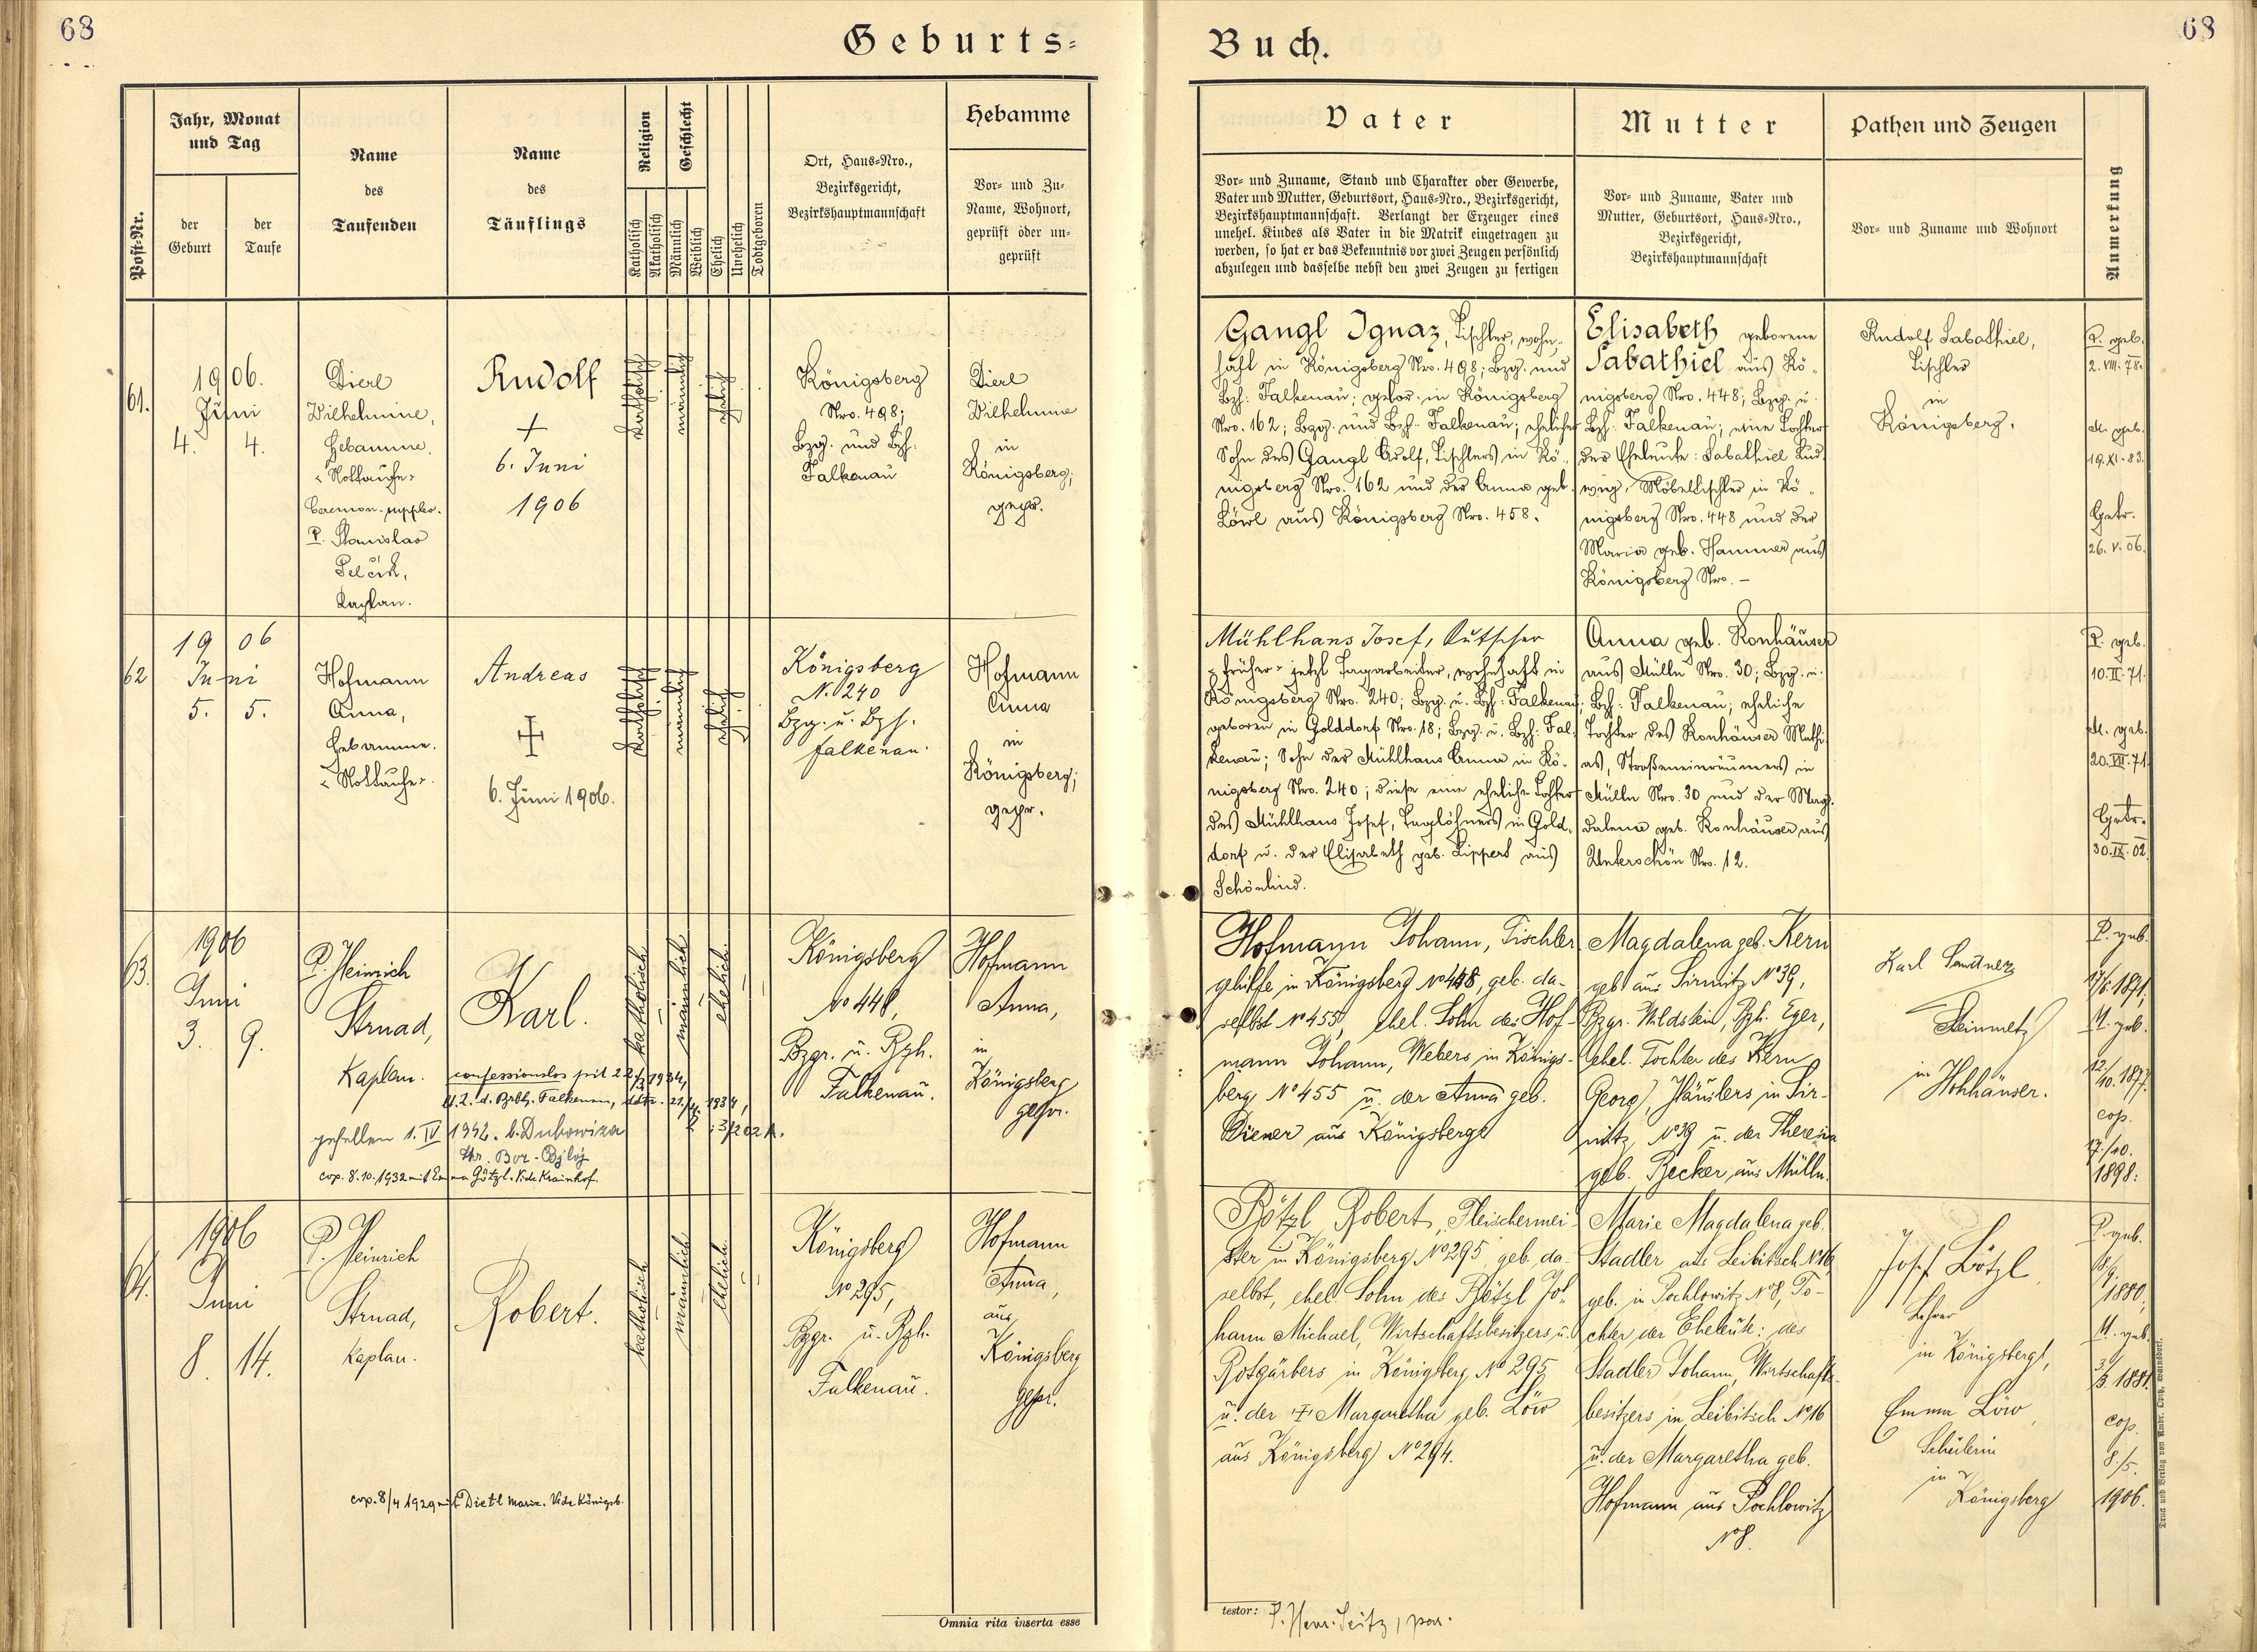 68
Geburts=
Post-Nr.
Jahr, Monat
und Tag
der
Geburt
der
Taufe
Name
des
Taufenden
Name
des
Täuflings
Religion
Katholisch
Akatholisch
Geschlecht
Männlich
Weiblich
Ehelich
Unehelich
Todtgeboren
Ort, Haus=Nro.,
Bezirksgericht,
Bezirkshauptmannschaft
Hebamme
Vor= und Zu=
Name, Wohnort,
geprüft oder un=
geprüft
61.
1906.
Juni
4. 4.
Dierl
Wilhelmine,
Hebamme.
"Nottaufe"
Ceremon. supplev.
P. Stanislav
Kaplan.
Rudolf
+
6. Juni
1906
katholisch
männlich
ehelich
Königsberg
Nro. 498;
Bzg. und Bzh.
Falkenau
Dierl
Wilhelmine
in
Königsberg;
gepr.
62
1906
Juni
5. 5.
Hofmann
Anna,
Hebamme.
"Nottaufe".
Andreas
6. Juni 1906.
katholisch
männlich
ehelich
Königsberg
N. 240
Bzg. u. Bzh.
Falkenau.
Hofmann
Anna
in
Königsberg;
gepr.
63.
1906
Juni
3. 9.
P. Heinrich
Strnad,
Kaplan.
Karl.
confessionslos seit
gefallen 1. IV 1942. b. Dubowiza
cop. 8.10.1932 mit Emma Götzl. Vide Krainhof.
katholisch
männlich
ehelich.
Königsberg
No 448,
Bzgr. u. Bzh.
Falkenau.
Hofmann
Anna,
in
Königsberg
gepr.
64.
1906
Juni
8. 14.
P. Heinrich
Strnad,
Kaplan.
Robert.
cop. 8/4 1929 mit Dietl Marie. Vide Königsb.
katholisch
männlich
ehelich.
Königsberg
No 295,
Bzgr. u. Bzh.
Falkenau.
Hofmann
Anna,
aus
Königsberg
gepr.
Omnia rita inserta esse
68
Buch.
Vater
Vor= und Zuname, Stand und Charakter oder Gewerbe,
Vater und Mutter, Geburtsort, Haus=Nro., Bezirksgericht,
Bezirkshauptmannschaft. Verlangt der Erzeuger eines
unehel. Kindes als Vater in die Matrik eingetragen zu
werden, so hat er das Bekenntnis vor zwei Zeugen persönlich
abzulegen und dasselbe nebst den zwei Zeugen zu fertigen
Mutter
Vor= und Zuname, Vater und
Mutter, Geburtsort, Haus=Nro.,
Bezirksgericht,
Bezirkshauptmannschaft
Pathen und Zeugen
Vor= und Zuname und Wohnort
Anmerkung
Gangl Ignaz, Tischler, wohn-
haft in Königsberg Nro. 498; Bzg. und
Bzh: Falkenau; gebor. in Königsberg
Nro. 162; Bzg. und Bzh: Falkenau; ehelicher
Sohn des Gangl Adolf, Tischlers in Kö-
nigsberg Nro. 162 und der Anna geb.
Löwl aus Königsberg Nro. 458.
Elisabeth geborene
Sabathiel aus Kö-
nigsberg Nro. 448; Bzg. u.
Bzh. Falkenau; eine Tochter
der Eheleute: Sabathiel Lud-
wig, Möbeltischler in Kö-
nigsberg Nro. 448 und der
Maria geb. Hammer aus
Königsberg Nro. -
Rudolf Sabathiel,
Tischler
in
Königsberg.
P. geb.
2. VIII. 78.
M. geb.
19. XI. 83.
Getr.
26. V. 06.
Mühlhans Josef, Kutscher
"früher" jetzt Tagarbeiter, wohnhaft in
Königsberg Nro. 240; Bzg. u. Bzh: Falkenau;
geboren in Golddorf Nro. 18; Bzg. u. Bzh: Fal-
kenau; Sohn der Mühlhans Anna in Kö-
nigsberg Nro. 240; diese eine eheliche Tochter
des Mühlhans Josef, Taglöhners in Gold-
dorf u. der Elisabeth geb. Lippert aus
Schönlind.
Anna geb. Ronhäuser
aus Mülln Nro. 30; Bzg. u.
Bzh: Falkenau; eheliche
Tochter des Ronhäuser Mathi-
as, Straßeneinräumers in
Mülln Nro. 30 und der Mag-
dalena geb. Ronhäuser aus
Unterschön Nro. 12.
P. geb.
10. II. 71.
M. geb.
20. VII. 71.
Getr.
30. IX. 02.
Hofmann Johann, Tischler
gehilfe in Königsberg No 448, geb. da-
selbst No 455, ehel. Sohn des Hof-
mann Johann, Webers in Königs-
berg No 455 u. der Anna geb.
Diener aus Königsberg
Magdalena geb. Kern
geb. aus Sirmitz No 39,
Bzgr. Wildstein, Bzh. Eger,
ehel. Tochter des Kern
Georg, Häuslers in Sir-
mitz, No 39 u. der Theresia
geb. Becker aus Mülln.
Karl
Steinmetz
in Hohhäuser.
P. geb.
17/5. 1871;
M. geb.
12/10. 1877.
cop.
17./10.
1898.
Pötzl Robert, Fleischermei-
ster in Königsberg No 295, geb. da-
selbst, ehel. Sohn des Pötzl Jo-
hann Michael, Wirtschaftsbesitzers u.
Rotgärbers in Königsberg No 295
u. der + Margaretha geb. Löw
aus Königsberg No 294.
Marie Magdalena geb.
Stadler aus Leibitsch No 16,
geb. in Pochlowitz No 8, To-
chter der Eheleute: des
Stadler Johann, Wirtschafts-
besitzers in Leibitsch No 16
u. der Margaretha geb.
Hofmann aus Pochlowitz
No 8.
Josef
Lehrer
in Königsberg,
Emma Löw,
Schülerin
in
Königsberg
P. geb.
1880;
M. geb.
1881.
cop.
8./5.
1906.
testor:
Druck und Verlag von Ambr. Opitz, Warnsdorf.